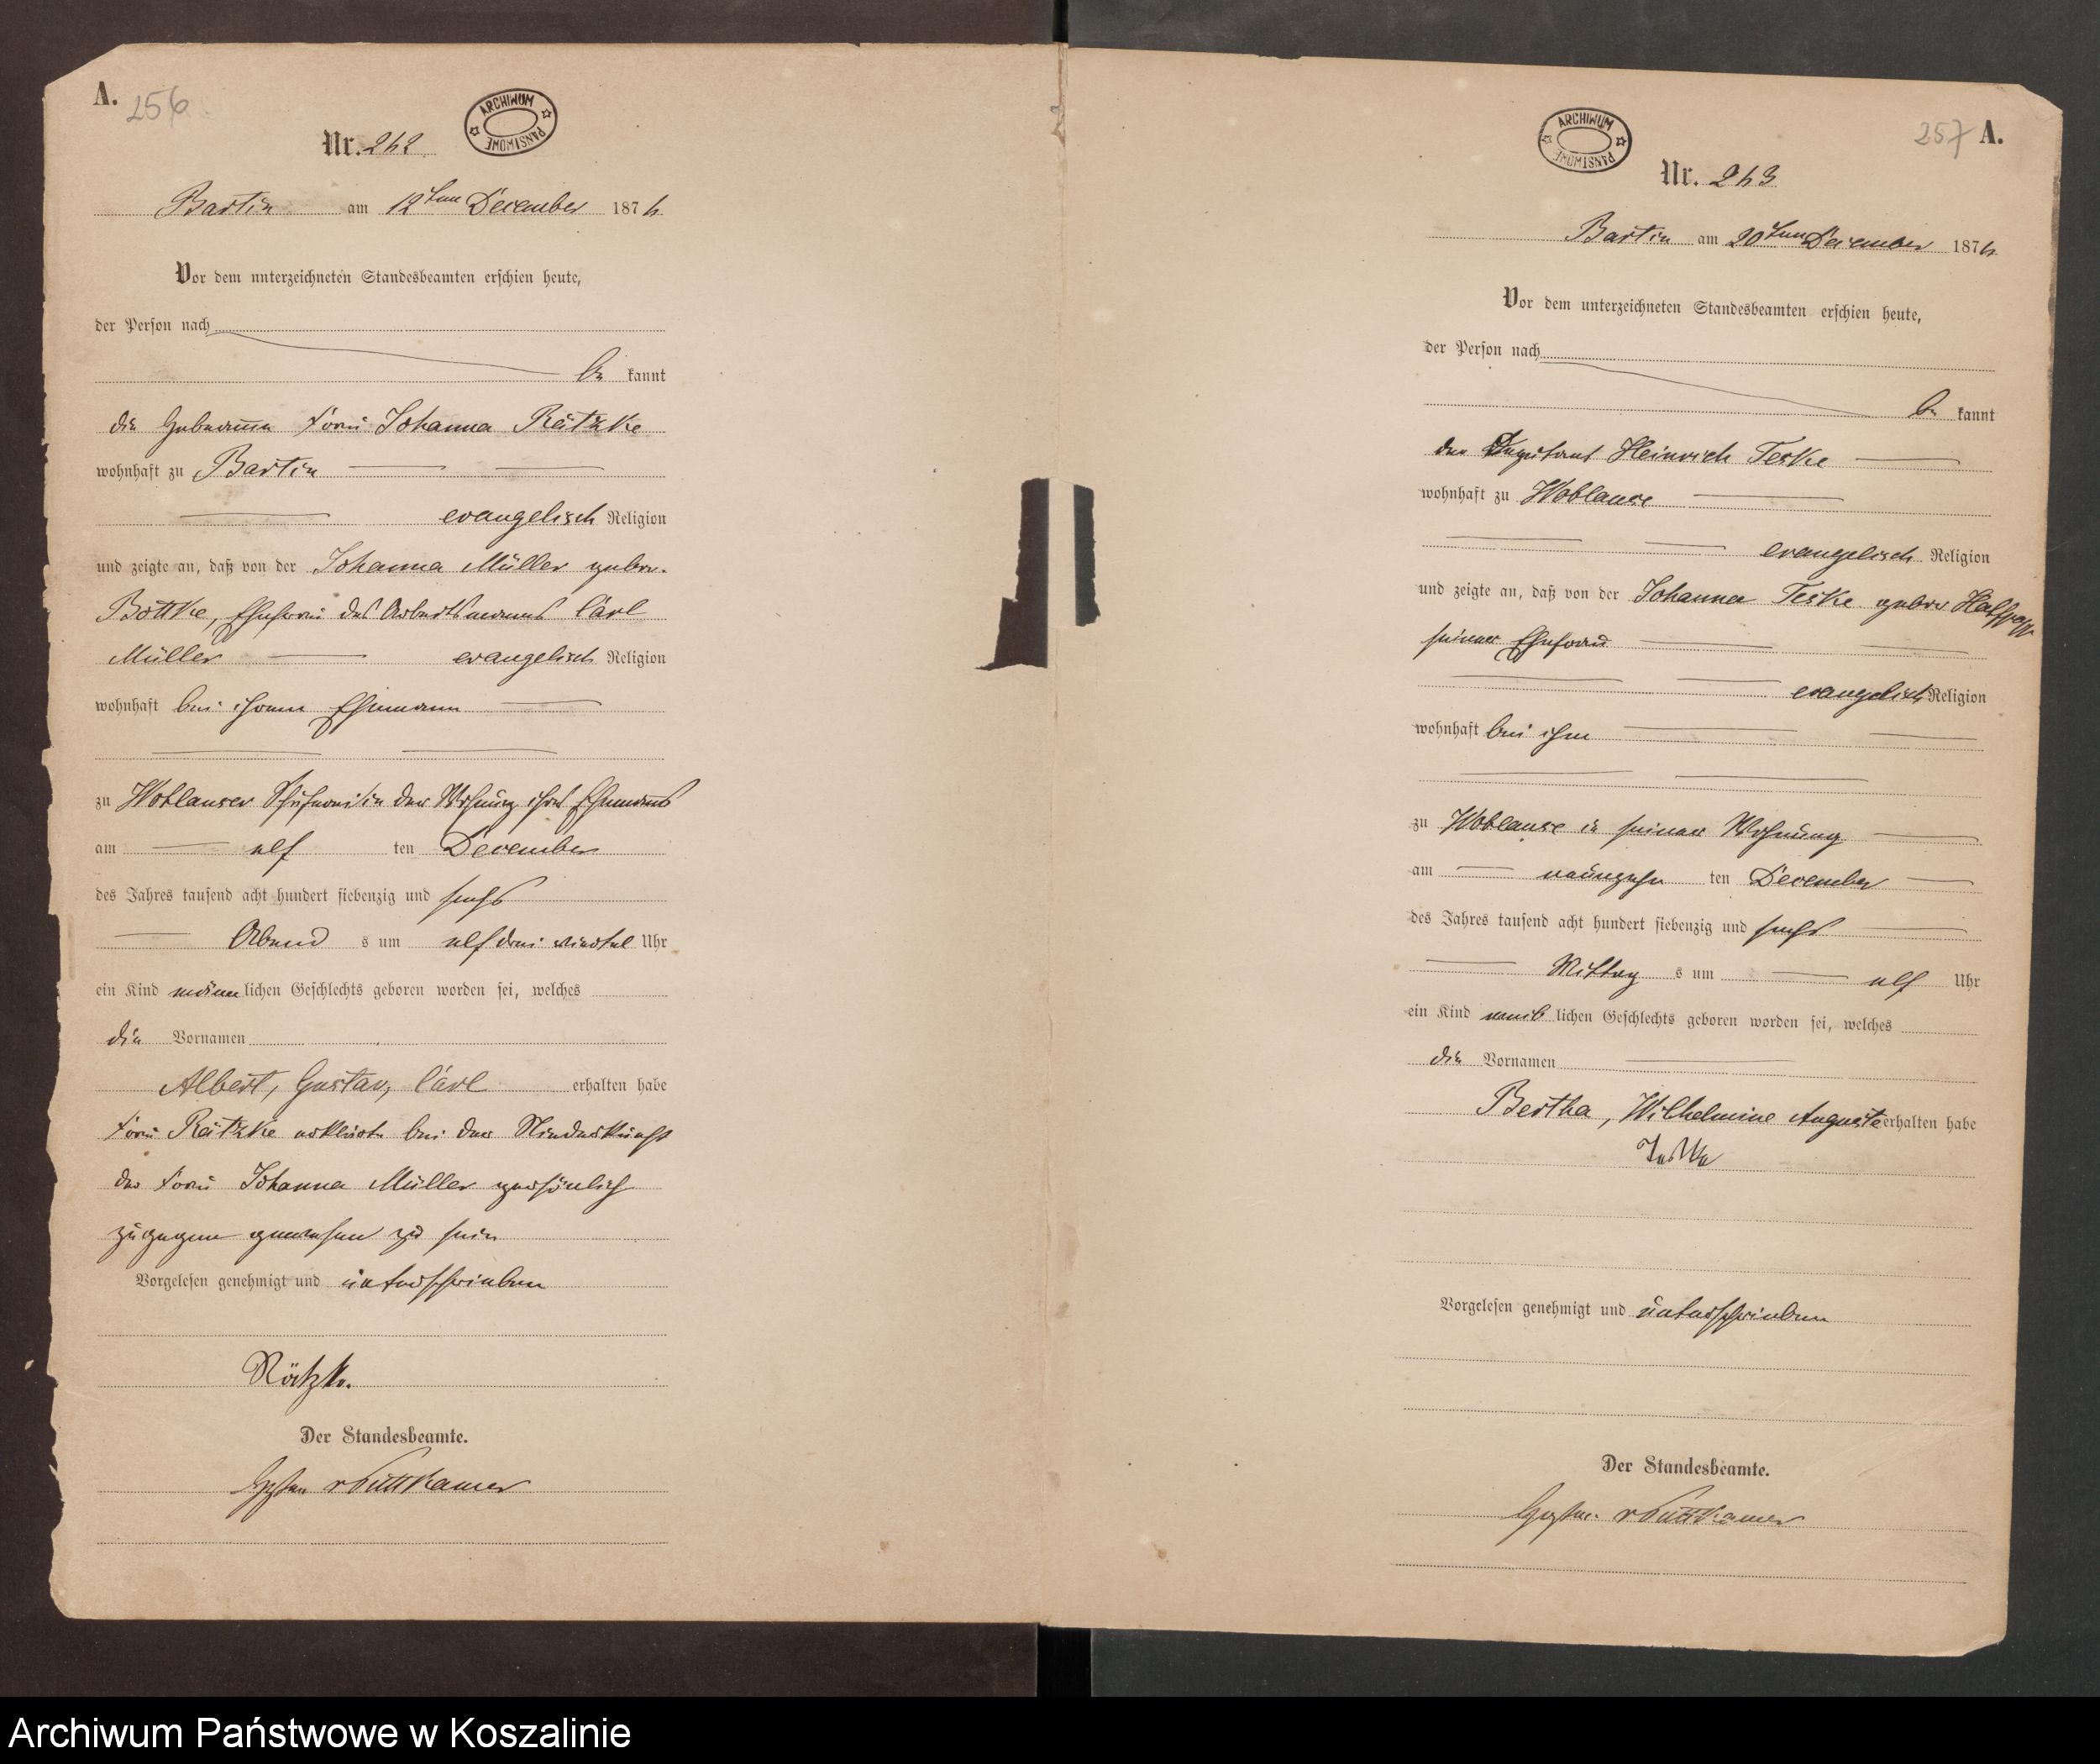 A.
256
ARCHIWUM PAŃSTWOWE
Nr. 242
Bartin am 12ten December 1876
Vor dem unterzeichneten Standesbeamten erschien heute,
der Person nach
be kannt
die Hebeamme Frau Johanna Rätzke
wohnhaft zu Bartin
evangelisch Religion
und zeigte an, daß von der Johanna Müller gebor.
Bottke, Ehefrau des Arbeitsmanns Carl
Müller evangelisch Religion
wohnhaft bei ihrem Ehemann
zu Woblanser in der Wohnung ihres Ehemanns
am elf ten December
des Jahres tausend acht hundert siebenzig und sechs
Abend s um elf drei viertel Uhr
ein Kind männ lichen Geschlechts geboren worden sei, welches
die Vornamen
Albert, Gustav, Carl erhalten habe
Frau Rätzke erklärte bei der Niederkunft
der Frau Johanna Müller persönlich
zugegen gewesen zu sein
Vorgelesen genehmigt und unterschrieben
Rätzke.
Der Standesbeamte.
v Puttkamer
257 A.
ARCHIWUM PAŃSTWOWE
Nr. 243
Bartin am 20ten December 1876
Vor dem unterzeichneten Standesbeamten erschien heute,
der Person nach
be kannt
der Heinrich Teske
wohnhaft zu Woblanse
evangelisch Religion
und zeigte an, daß von der Johanna Teske gebor
seiner Ehefrau
evangelisch Religion
wohnhaft bei ihm
zu Woblanse in seiner Wohnung
am neunzehn ten December
des Jahres tausend acht hundert siebenzig und sechs
Mittag s um elf Uhr
ein Kind weib lichen Geschlechts geboren worden sei, welches
die Vornamen
Bertha, Wilhelmine Auguste erhalten habe
Teske
Vorgelesen genehmigt und unterschrieben
Der Standesbeamte.
v Puttkamer
Archiwum Państwowe w Koszalinie